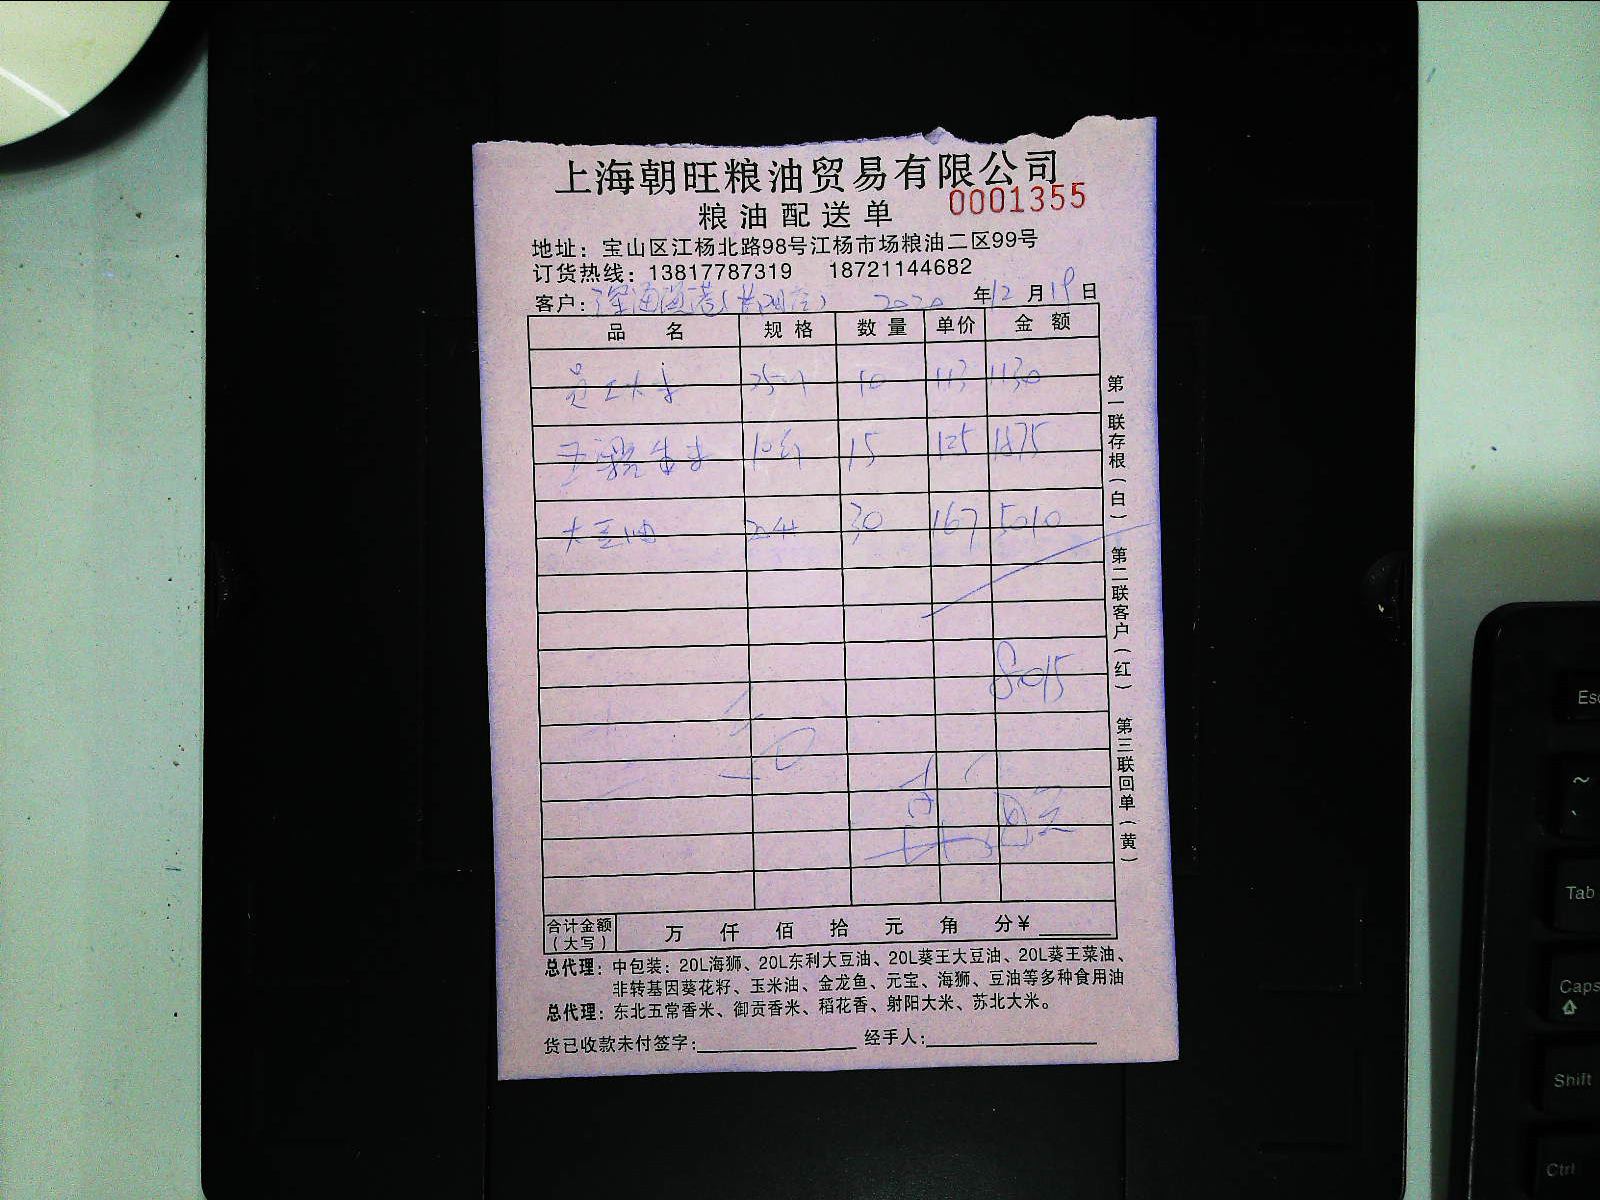 上海朝旺粮油贸易有限公司
0001355
粮油配送单
地址：宝山区江杨北路98号江杨市场粮油二区99号
订货热线：13817787319 18721144682
客户： 2020 年12月19日
品 名 规 格 数 量 单价 金 额
员工大米 25 10 113 1130
10斤 15 125 1875
大豆油 30 167 5010
8015
第一联存根（白） 第二联客户（红） 第三联回单（黄）
合计金额（大写） 万 仟 佰 拾 元 角 分￥
总代理：中包装：20L海狮、20L东利大豆油、20L葵王大豆油、20L葵王菜油、
非转基因葵花籽、玉米油、金龙鱼、元宝、海狮、豆油等多种食用油
总代理：东北五常香米、御贡香米、稻花香、射阳大米、苏北大米。
货已收款未付签字： 经手人：
Esc
~
`
Tab
Caps
Shift
Ctrl